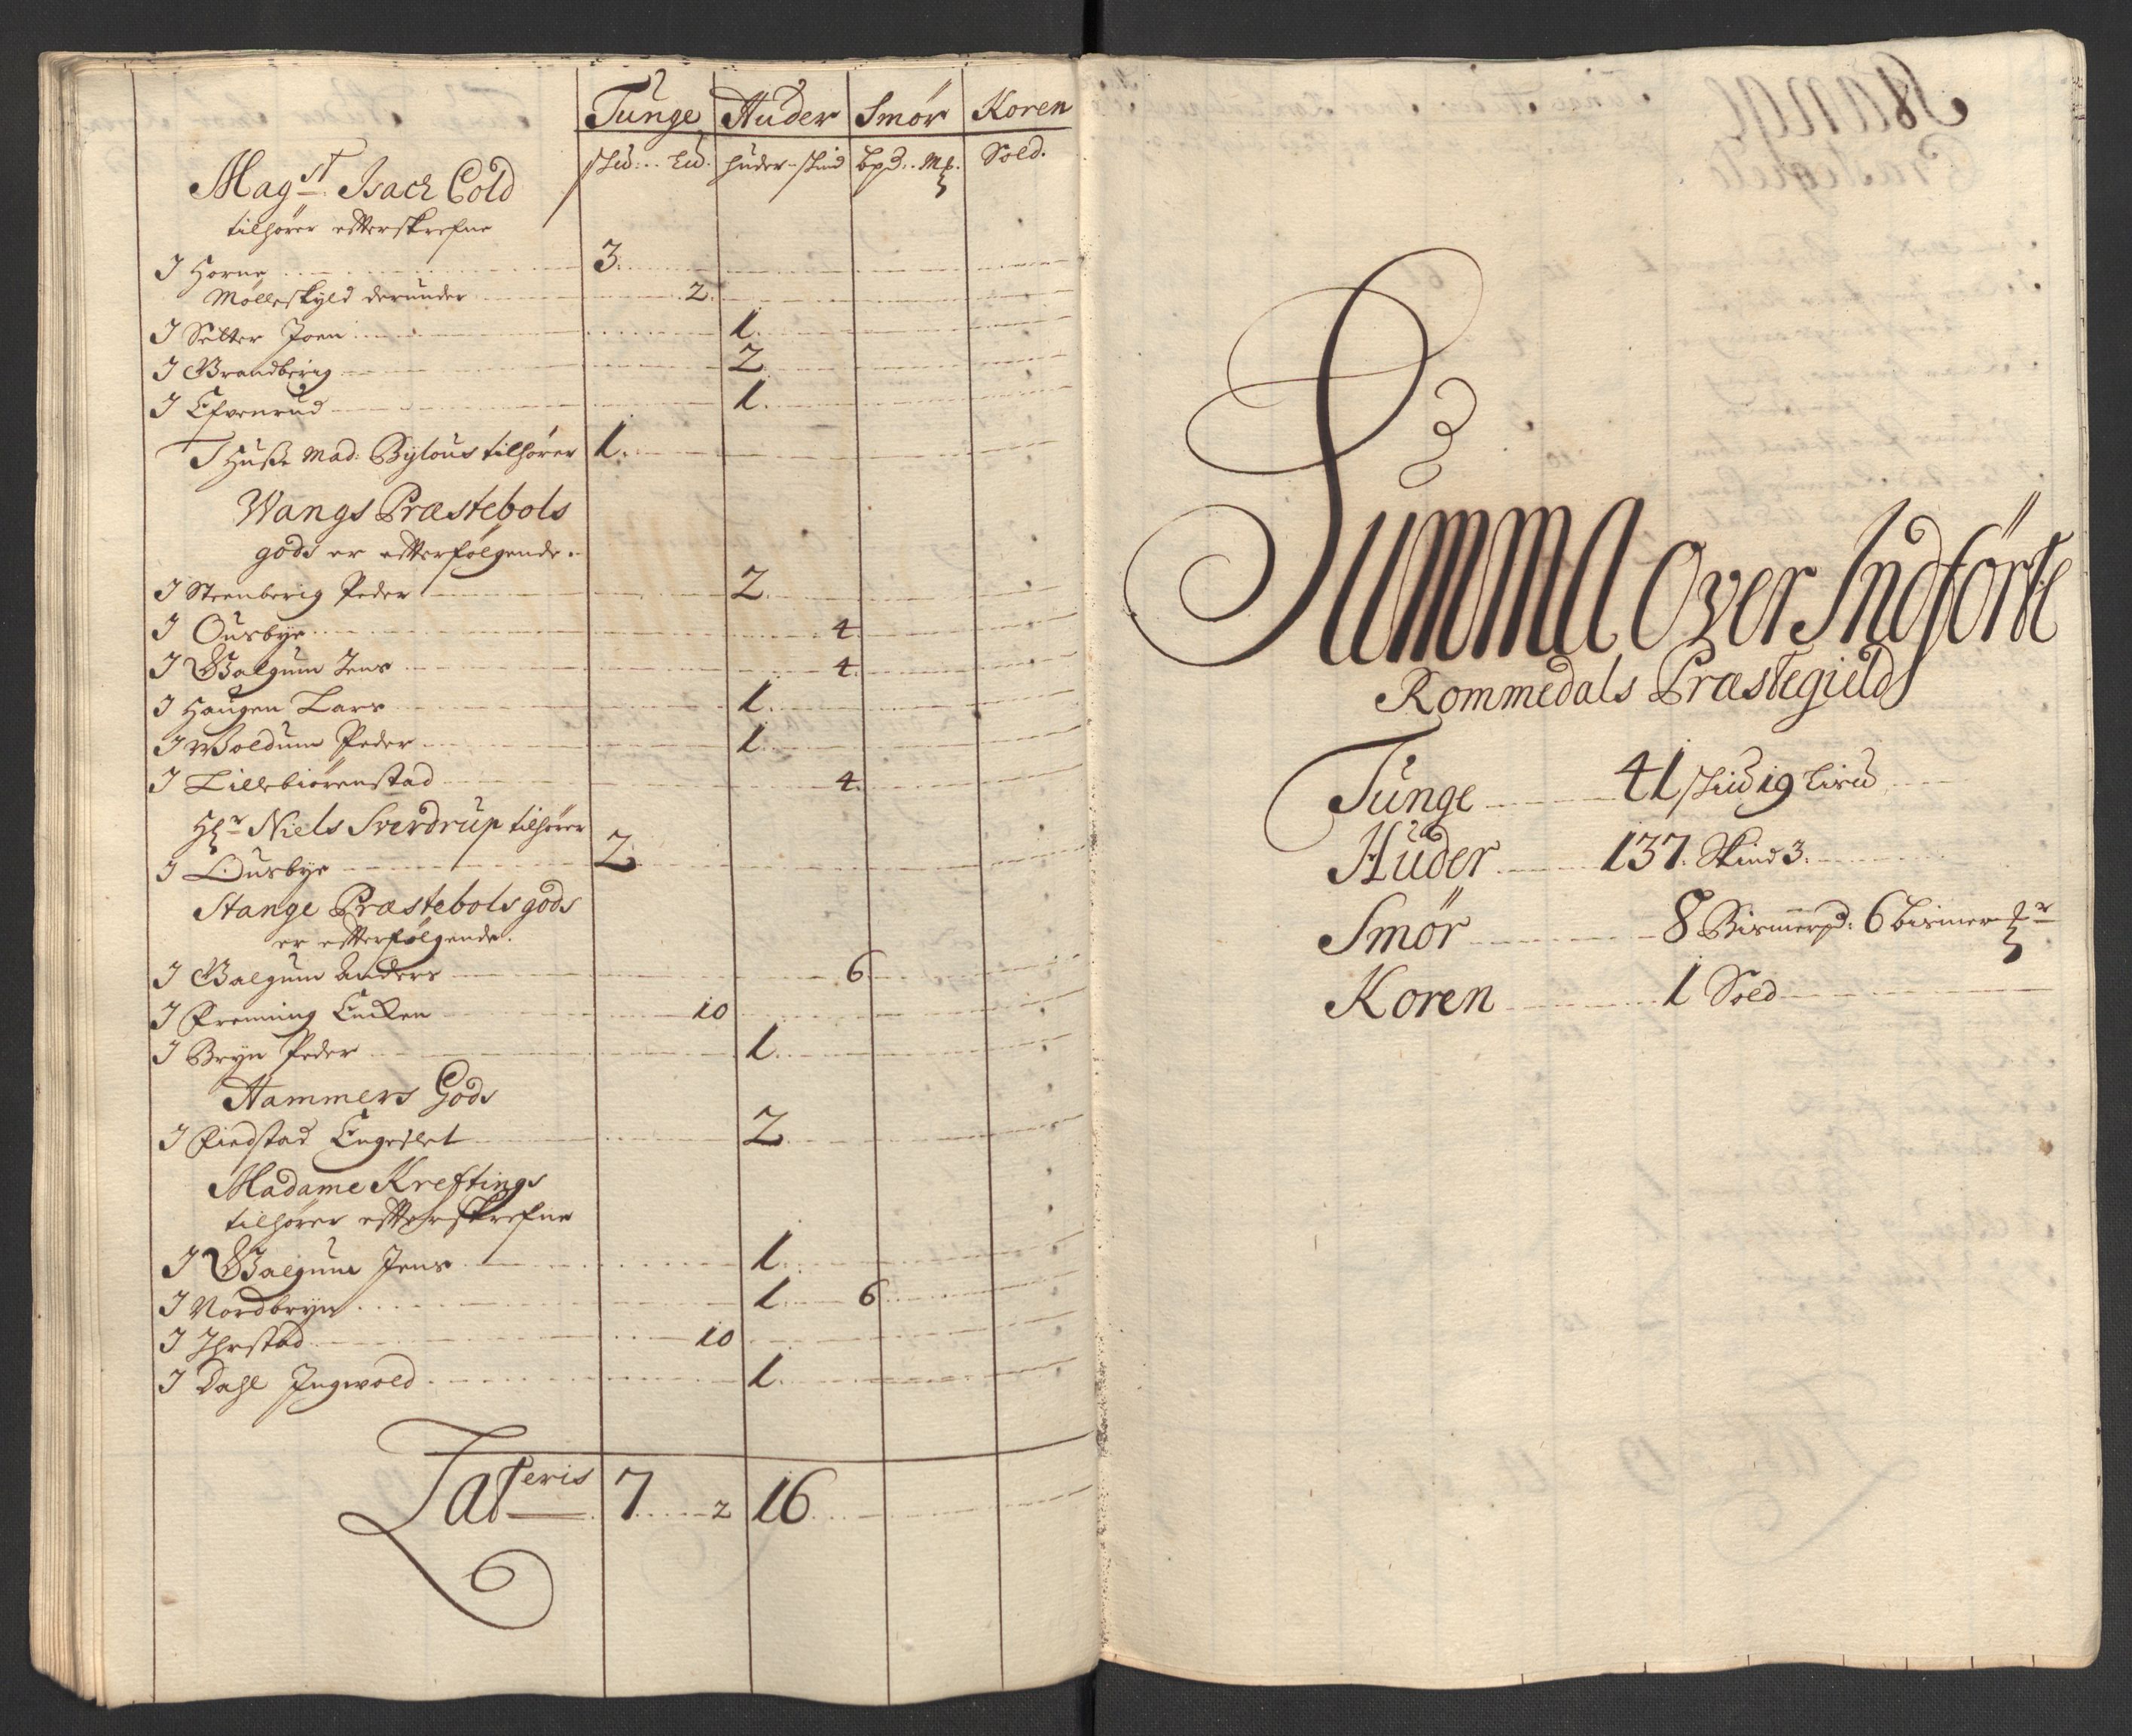 Tunge Huder Smør Koren
skud: Lid. huder skind bpd: Mk. Sold.
Magst. Isach Cold
tilhører effterskrefne
I Horne 3.
Mølleskyld derunder 2.
I Selter Joen 1.
I Brandberig 2
I Efvenrud 1.
I Huße Mad: Bylous tilhører 1.
Wangs Præstebols
gods er effterfølgende.
I Steenberig Peder 2.
I Ousbye 4.
I Balgum Jens 4.
I Haugen Lars 1.
I Woldum Peder 1.
I Lillebiørenstad 4.
Hr Niels Sverdrup tilhører
I Ousbye 2.
Stange Præstebols gods
er effterfølgende.
I Balgum Anders 6.
I Frenning 10
I Bryn Peder 1.
Hammers Gods
I Fiedstad Engeslet 2.
Madame Kreftings
tilhører effterskrefne
I Balgum Jens 1.
I Nordbryn 1. 6
I Ihrstad 10
I Dahl Ingwold 1.
Lateris 7 2 16
Summa Over Indførte
Rommedals Præstegield
Tunge 41 skud 19 Lisd
Huder 137. Skind 3.
Smør 8 Bismerpd: 6 bismer
Koren 1 Sold